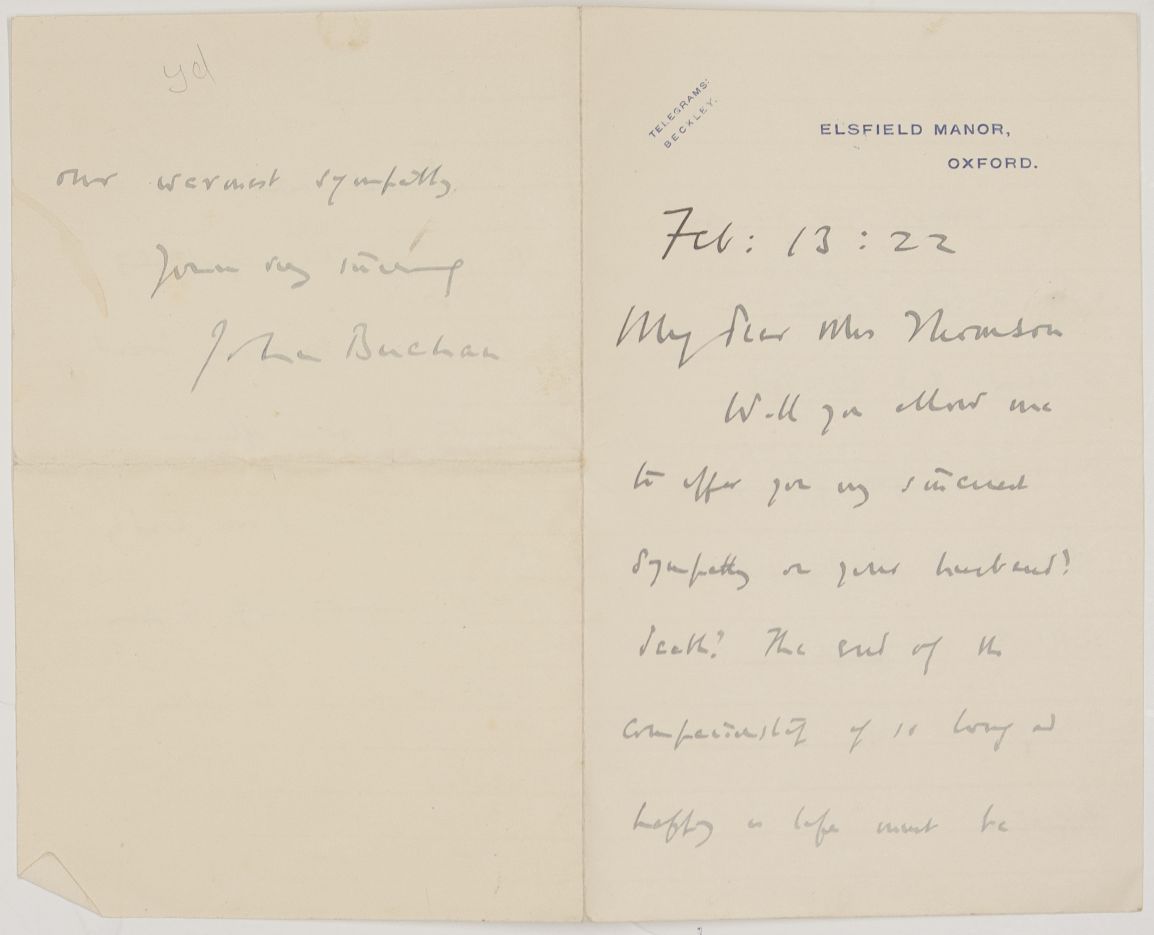 TELEGRAMS:
BECKLEY.
ELSFIELD MANOR,
OXFORD.
Feb: 13 : 22
My dear Mrs Thomson
Will you allow me
to offer you my sincerest
sympathy on your husband's
death? The end of the
companionship of so long and
happy a life must be
yd
our warmest sympathy.
Yours very sincerely
John Buchan